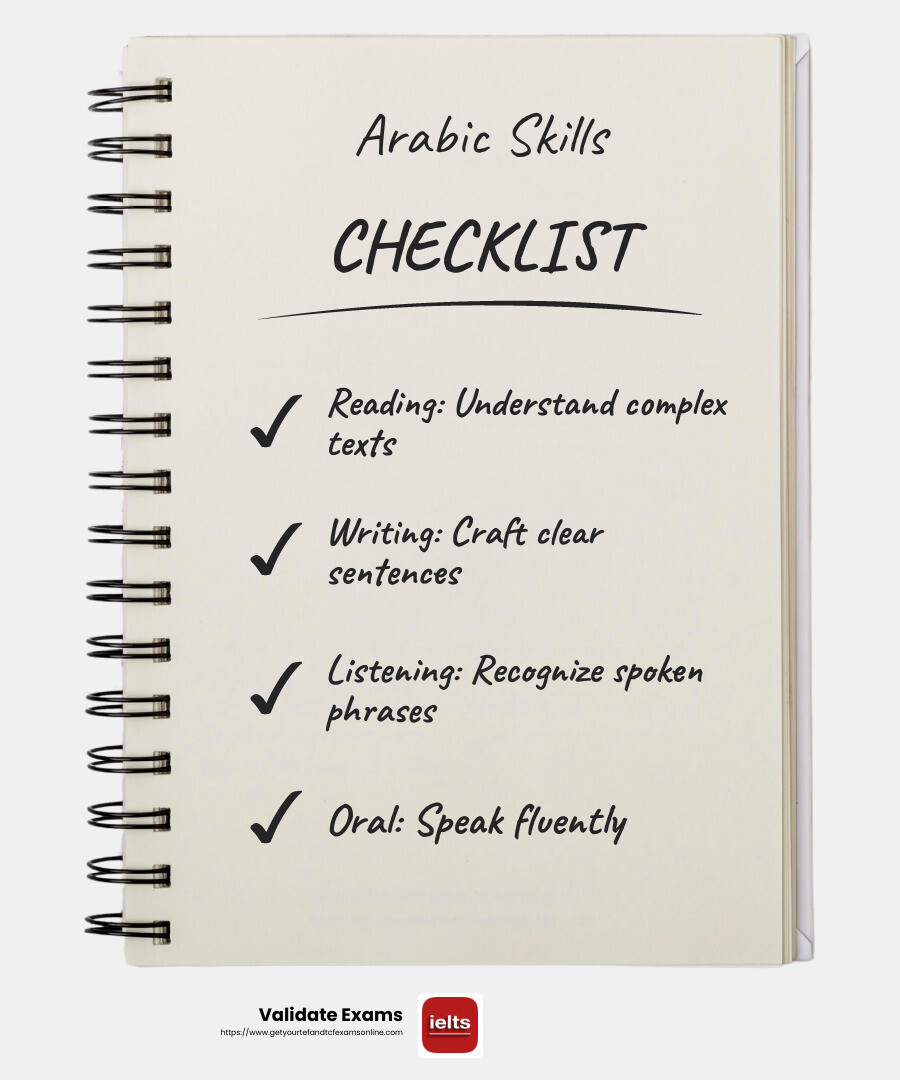 Arabic Skills
CHECKLIST
Reading: Understand complex
texts
Writing: Craft clear
sentences
Listening: Recognize spoken
phrases
Oral: Speak fluently
Validate Exams
https://www.getyourtefandtcfexamsonline.com
ielts